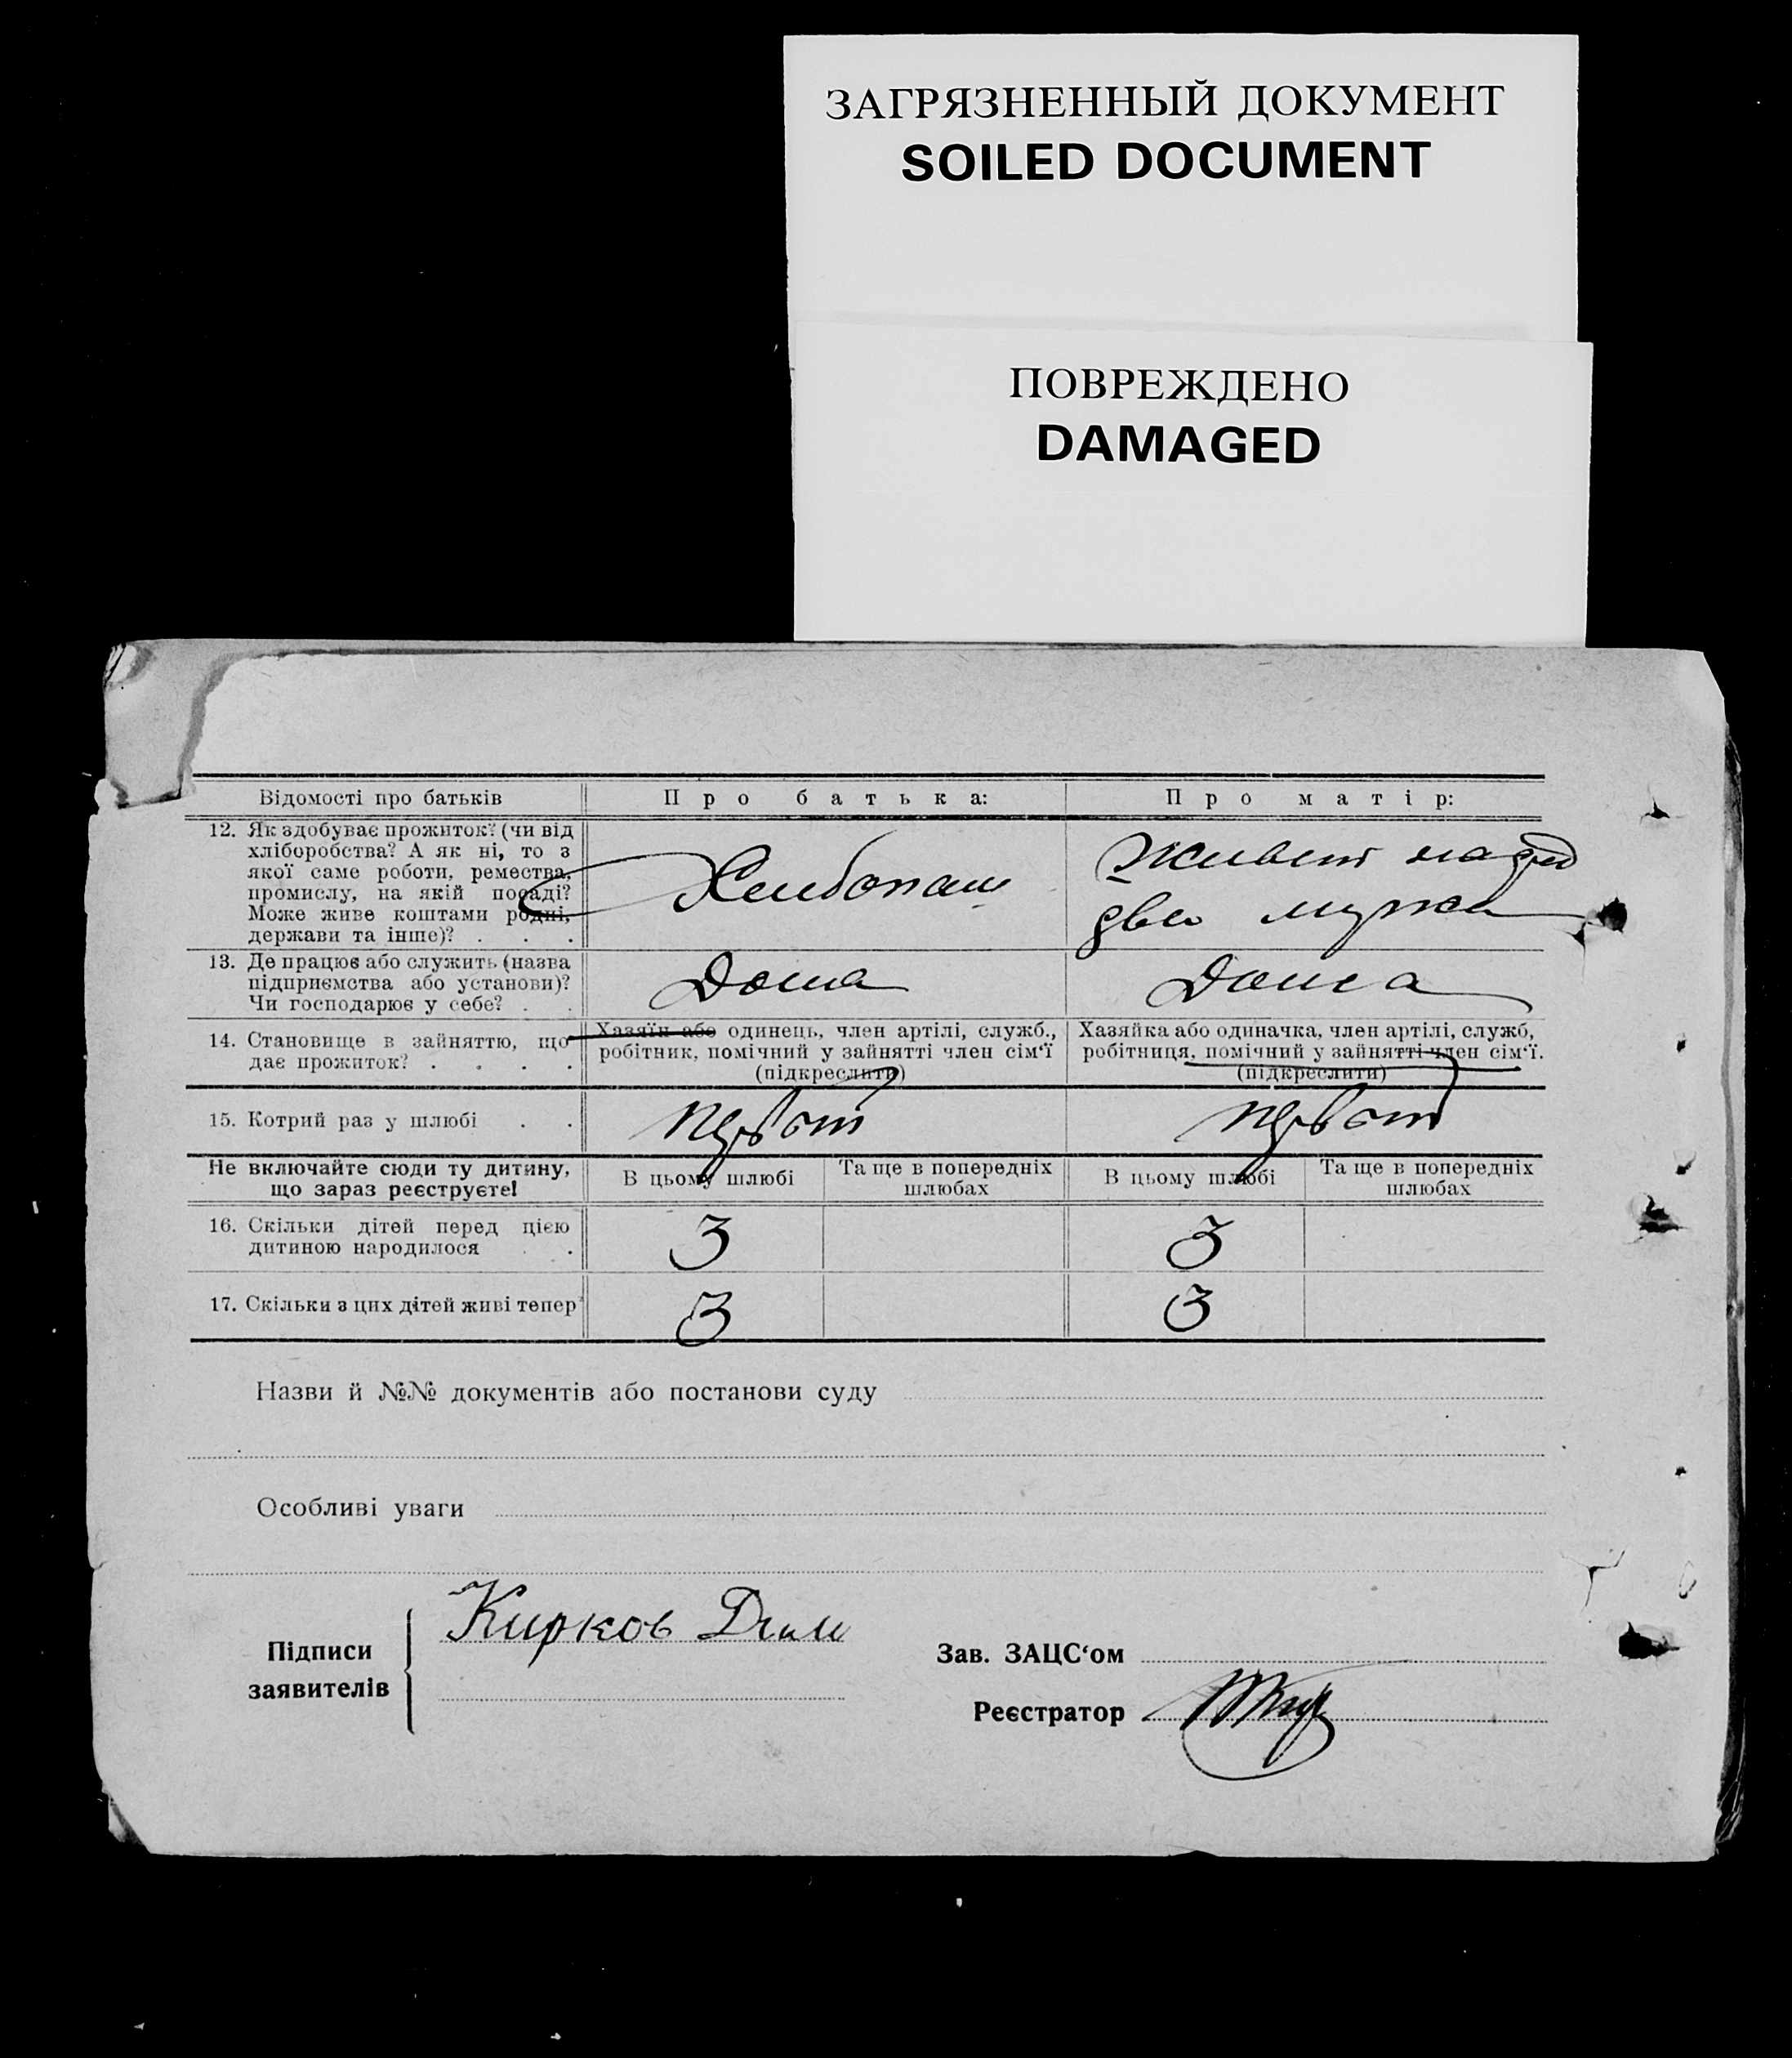 ЗАГРЯЗНЕННЫЙ ДОКУМЕНТ
SOILED DOCUMENT
ПОВРЕЖДЕНО
DAMAGED
Відомості про батьків Про батька: Про матір:
12. Як здобуває прожиток? (чи від
хліборобства? А як ні, то з
якої саме роботи, ремества,
промислу, на якій посаді?
Може живе коштами родні,
держави та інше)? . . .
Хлибопаш
Живет
мужа
13. Де працює або служить (назва
підприємства або установи)?
Чи господарює у себе? . .
Дома Дома
14. Становище в зайняттю, що
дає прожиток? . . . .
Хазяїн або одинець, член артілі, служб.,
робітник, помічний у зайнятті член сім'ї
(підкреслити)
Хазяйка або одиначка, член артілі, служб,
робітниця, помічний у зайнятті член сім'ї.
(підкреслити)
15. Котрий раз у шлюбі . .
Не включайте сюди ту дитину,
що зараз реєструєте!
В цьому шлюбі
Та ще в попередніх
шлюбах
В цьому шлюбі
Та ще в попередніх
шлюбах
16. Скільки дітей перед цією
дитиною народилося . .
3 3
17. Скільки з цих дітей живі тепер?
3 3
Назви й №№ документів або постанови суду
Особливі уваги
Підписи
заявителів
Кирков
Зав. ЗАЦС‘ом
Реєстратор